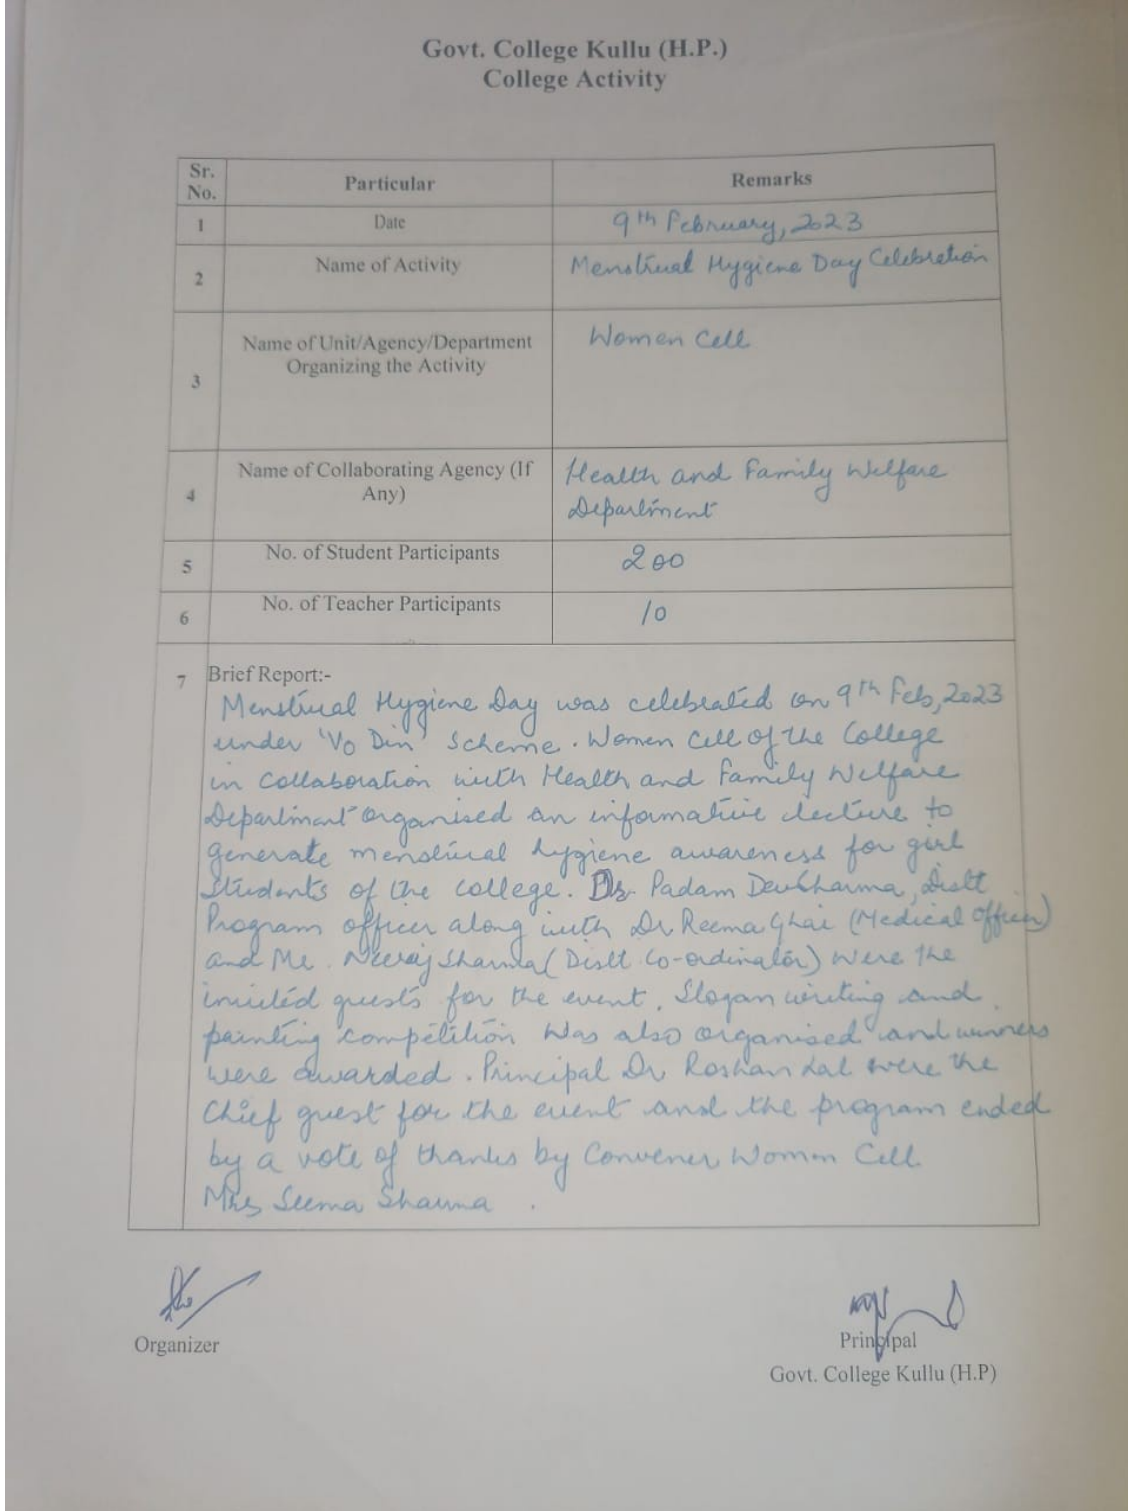 Govt. College Kullu (H.P.)
College Activity
Sr. No. Particular Remarks
1 Date 9th February, 2023
2 Name of Activity Menstrual Hygiene Day Celebration
3 Name of Unit/Agency/Department Organizing the Activity Women Cell
4 Name of Collaborating Agency (If Any) Health and Family Welfare Department
5 No. of Student Participants 200
6 No. of Teacher Participants 10
7 Brief Report:-
Menstrual Hygiene Day was celebrated on 9th Feb, 2023
under 'Vo Din' Scheme. Women Cell of the College
in collaboration with Health and Family Welfare
Department organised an informative lecture to
generate menstrual hygiene awareness for girl
Students of the college. Dr. Padam Dev Sharma, Distt
Program officer along with Dr Reema Ghai (Medical Officer)
and Mr. Neeraj Sharma (Distt Co-ordinator) were the
invited guests for the event. Slogan writing and
painting competition was also organised and winners
were awarded. Principal Dr Roshan Lal were the
Chief guest for the event and the program ended
by a vote of thanks by Convener Women Cell
Mrs Seema Sharma .
Organizer
Principal
Govt. College Kullu (H.P)